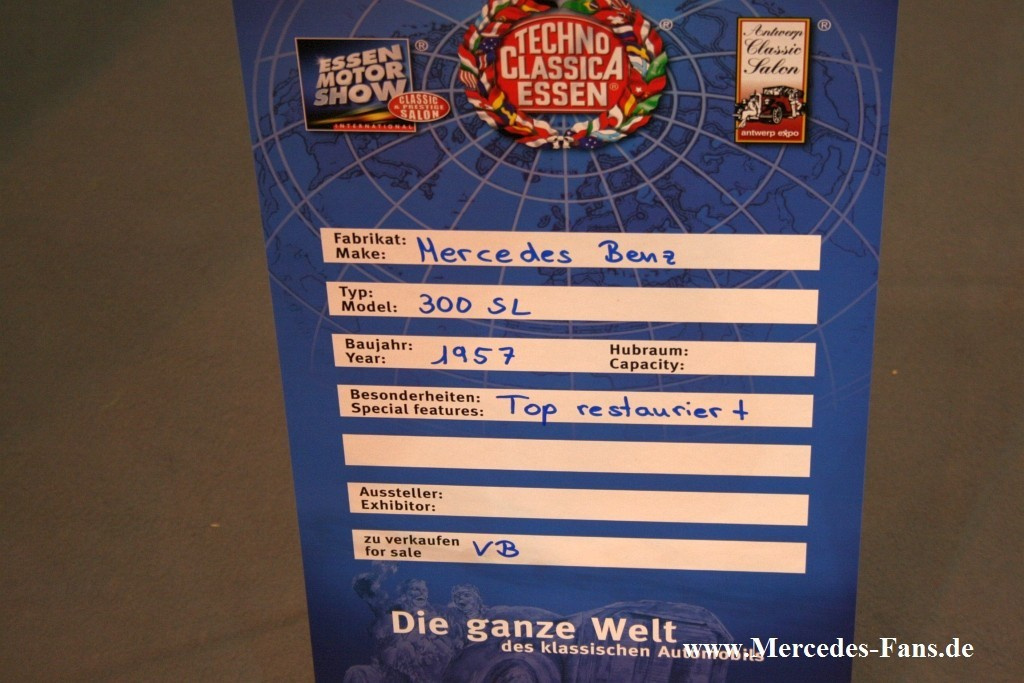 ESSEN
MOTOR
SHOW
CLASSIC
& PRESTIGE
SALON
INTERNATIONAL
®
TECHNO
CLASSICA
ESSEN®
®
Antwerp
Classic
Salon
antwerp expo
®
Fabrikat:
Make: Mercedes Benz
Typ:
Model: 300 SL
Baujahr:
Year: 1957
Hubraum:
Capacity:
Besonderheiten:
Special features: Top restauriert
Aussteller:
Exhibitor:
zu verkaufen
for sale VB
Die ganze Welt
des klassischen Automobils
www.Mercedes-Fans.de